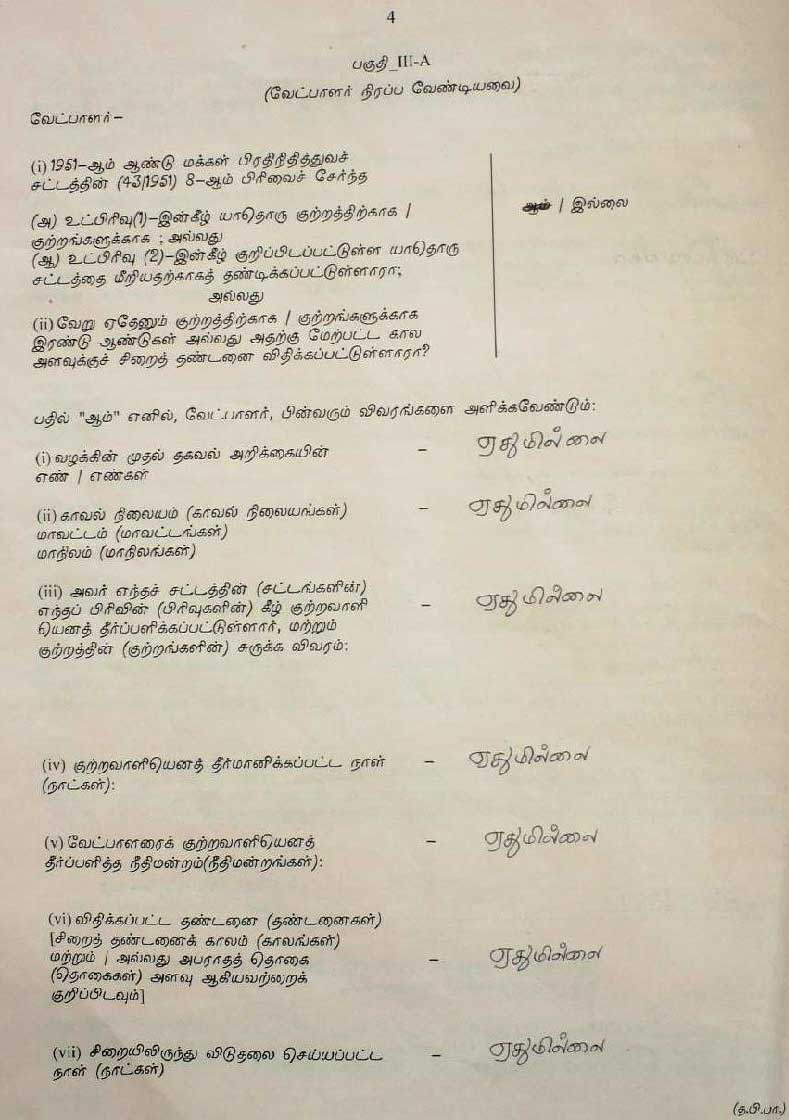 4
பகுதி_III-A
(வேட்பாளர் நிரப்ப வேண்டியவை)
வேட்பாளர்–
(i) 1951–ஆம் ஆண்டு மக்கள் பிரதிநிதித்துவச்
சட்டத்தின் (43/1951) 8–ஆம் பிரிவைச் சேர்ந்த
(அ) உட்பிரிவு(1)–இன்கீழ் யாதொரு குற்றத்திற்காக /
குற்றங்களுக்காக ; அல்லது
(ஆ) உட்பிரிவு (2)–இன்கீழ் குறிப்பிடப்பட்டுள்ள யாதொரு
சட்டத்தை மீறியதற்காகத் தண்டிக்கப்பட்டுள்ளாரா;
அல்லது
(ii) வேறு ஏதேனும் குற்றத்திற்காக / குற்றங்களுக்காக
இரண்டு ஆண்டுகள் அல்லது அதற்கு மேற்பட்ட கால
அளவுக்குச் சிறைத் தண்டனை விதிக்கப்பட்டுள்ளாரா?
ஆம் / இல்லை
பதில் "ஆம்" எனில், வேட்பாளர், பின்வரும் விவரங்களை அளிக்கவேண்டும்:
(i) வழக்கின் முதல் தகவல் அறிக்கையின் – ஏதுமில்லை
எண் / எண்கள்
(ii) காவல் நிலையம் (காவல் நிலையங்கள்) – ஏதுமில்லை
மாவட்டம் (மாவட்டங்கள்)
மாநிலம் (மாநிலங்கள்)
(iii) அவர் எந்தச் சட்டத்தின் (சட்டங்களின்)
எந்தப் பிரிவின் (பிரிவுகளின்) கீழ் குற்றவாளி – ஏதுமில்லை
யெனத் தீர்ப்பளிக்கப்பட்டுள்ளார், மற்றும்
குற்றத்தின் (குற்றங்களின்) சுருக்க விவரம்:
(iv) குற்றவாளியெனத் தீர்மானிக்கப்பட்ட நாள் – ஏதுமில்லை
(நாட்கள்):
(v) வேட்பாளரைக் குற்றவாளியெனத் – ஏதுமில்லை
தீர்ப்பளித்த நீதிமன்றம்(நீதிமன்றங்கள்):
(vi) விதிக்கப்பட்ட தண்டனை (தண்டனைகள்)
[சிறைத் தண்டனைக் காலம் (காலங்கள்)
மற்றும் / அல்லது அபராதத் தொகை – ஏதுமில்லை
(தொகைகள்) அளவு ஆகியவற்றைக்
குறிப்பிடவும்]
(vii) சிறையிலிருந்து விடுதலை செய்யப்பட்ட – ஏதுமில்லை
நாள் (நாட்கள்)
(த.பி.பா.)